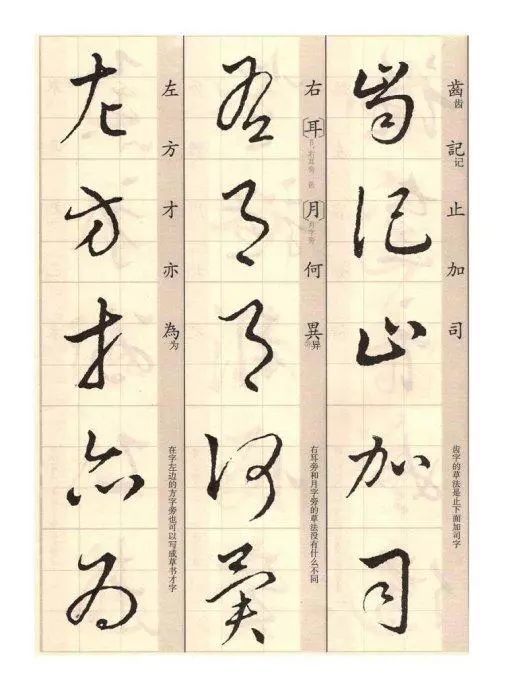 齒齿 記记 止 加 司
齿字的草法是止下面加司字
齒記止加司
右 耳 月 何 異异
右耳旁
月字旁
右耳旁和月字旁的草法没有什么不同
右耳月何異
左 方 才 亦 為为
在字左边的方字旁也可以写成草书才字
左方才亦為